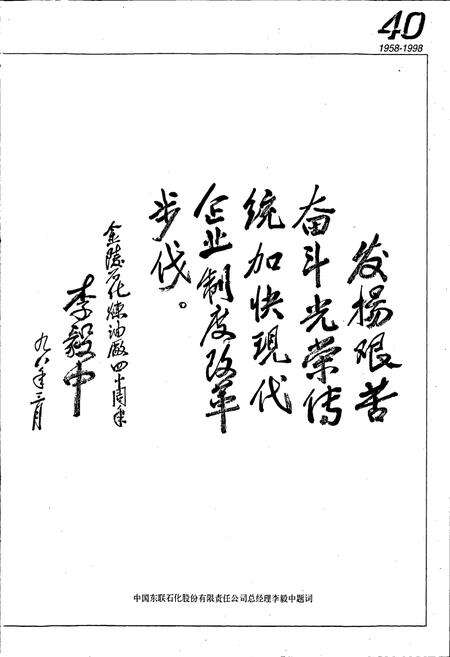 40
1958-1998
发揚艰苦
奋斗光荣传
统加快現代
企业制度改革
步伐。
金陵石化煉油廠四十周年
李毅中
九八年三月
中国东联石化股份有限责任公司总经理李毅中题词